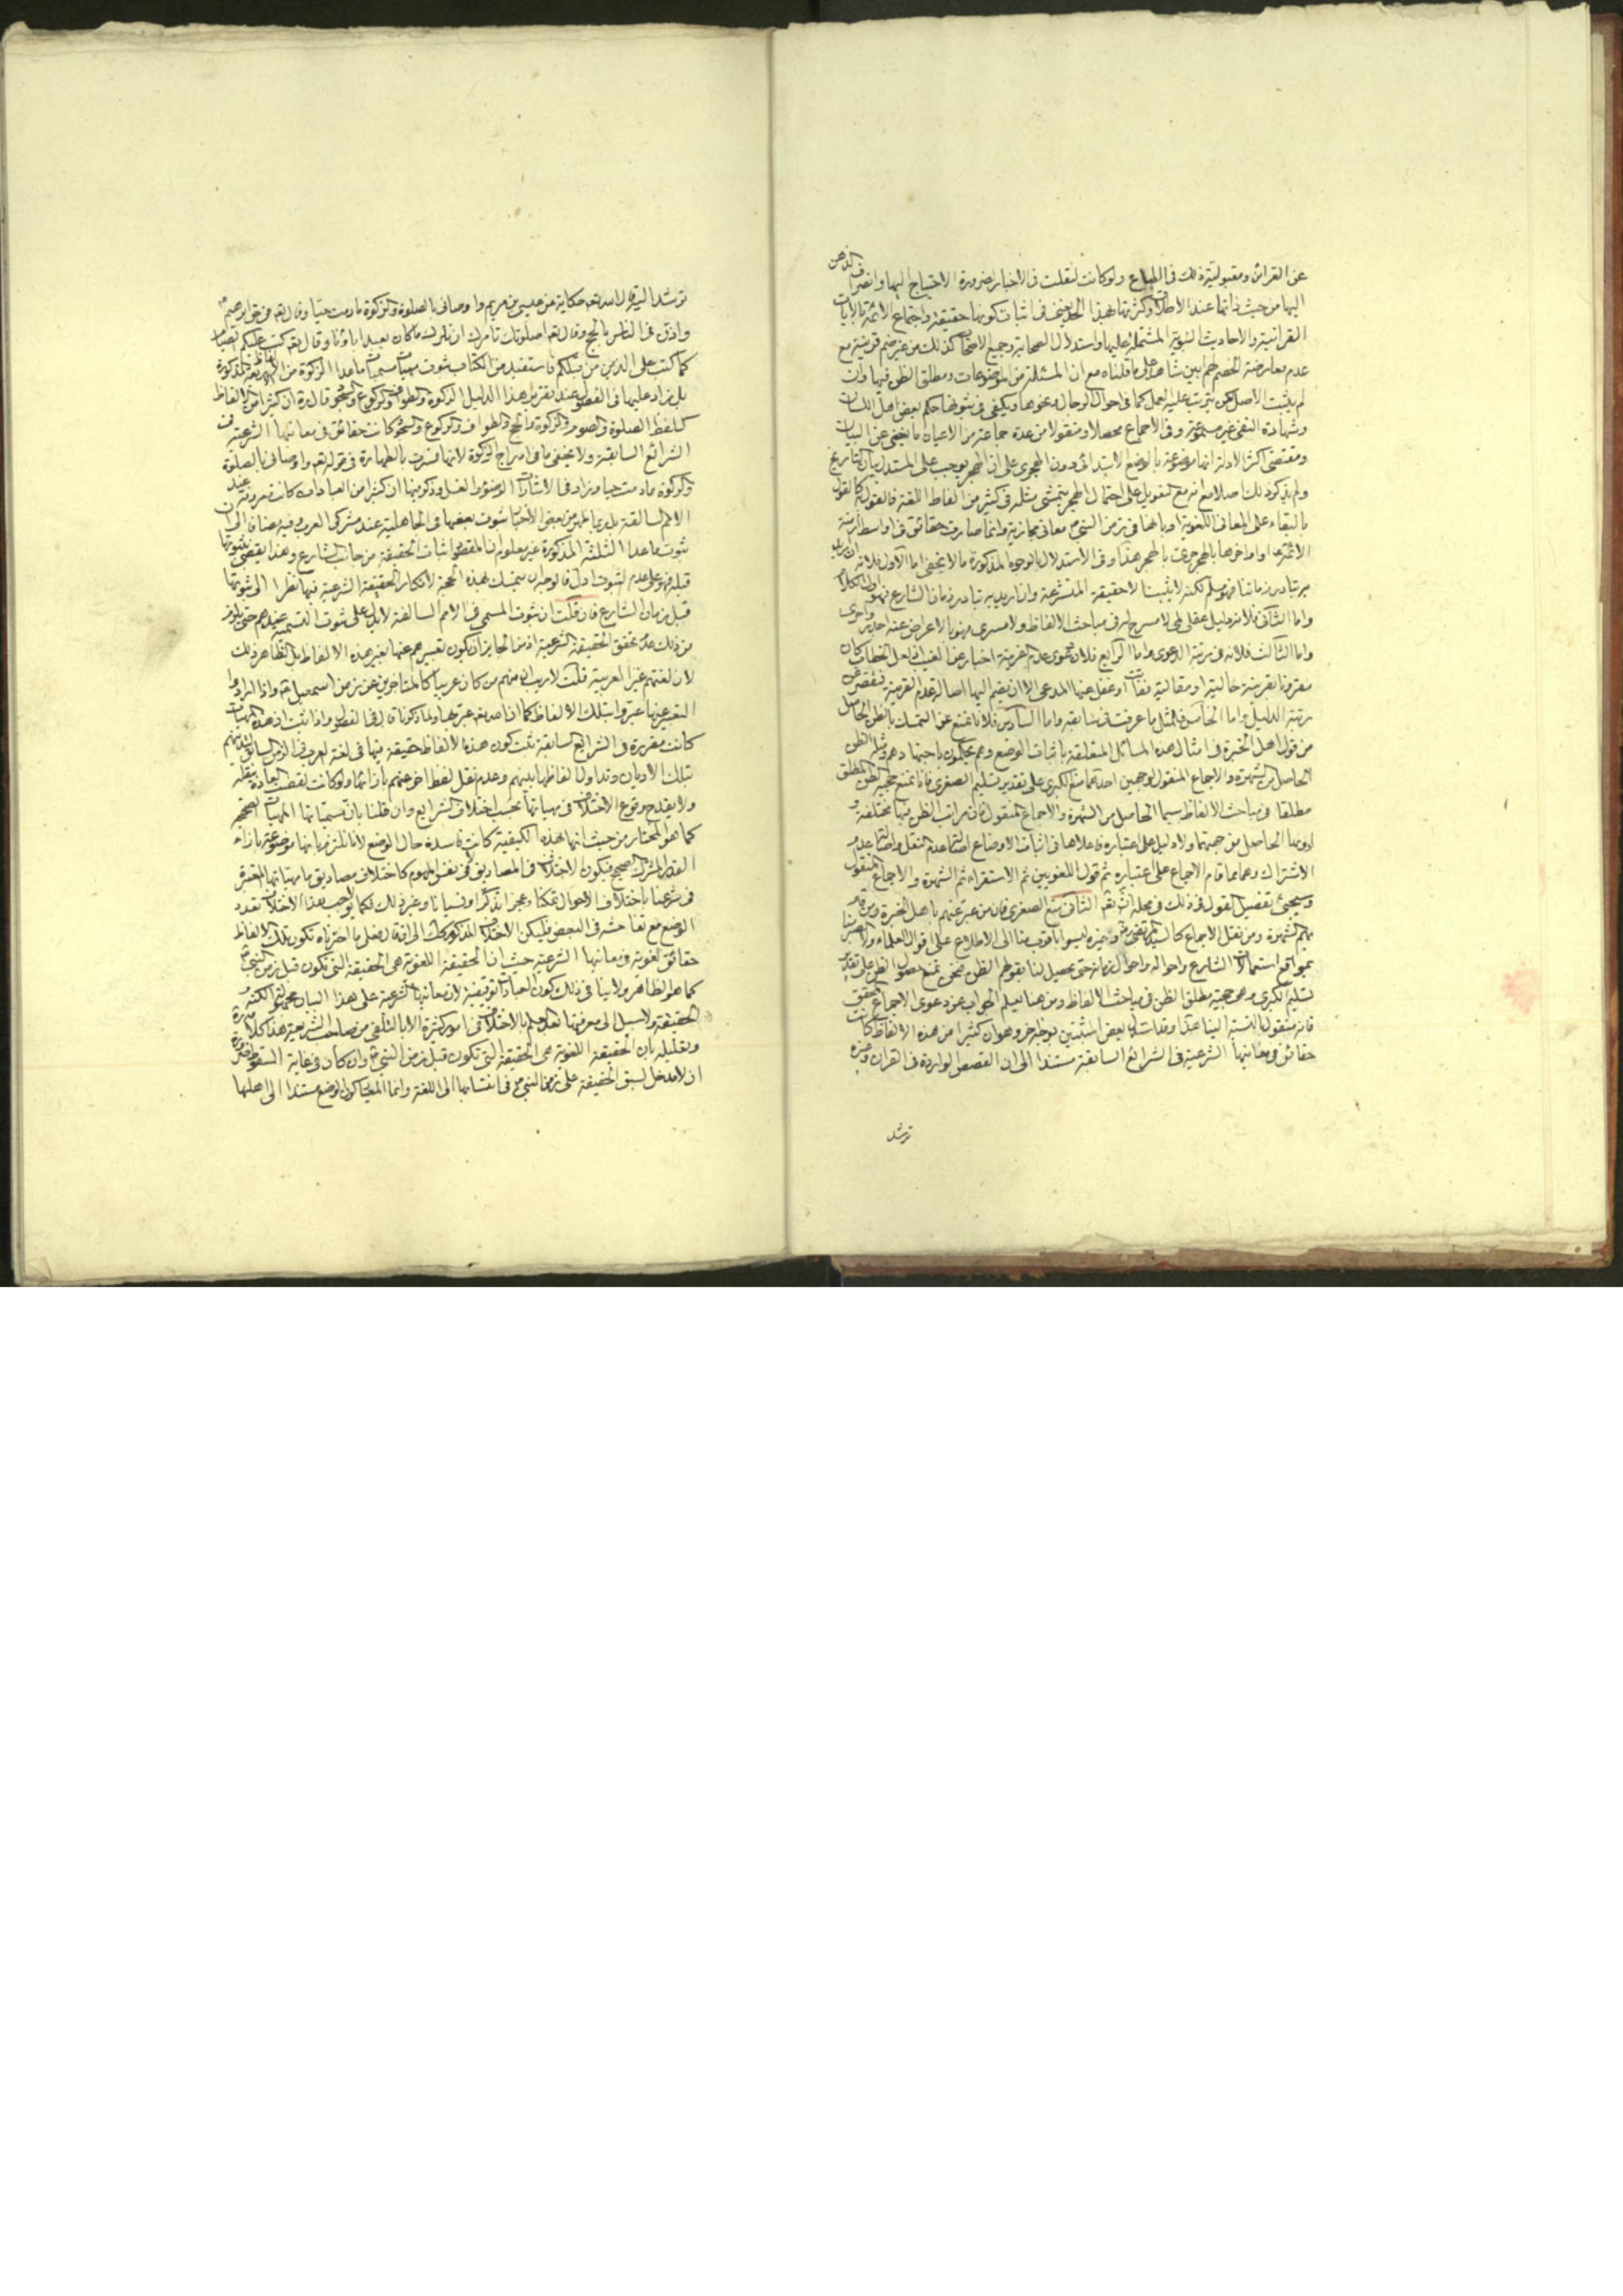 عن القرائن ومقبولية ذلك في اللباع ولو كانت لنقلت في الاخبار ضرورة الاحتياج اليها وانصراف الذهن
اليها من حيث ذاتها عند الاطلاق وكثرتها بهذا الحد يغني في اثبات كونها حقيقة واجتماع الائمة بالايات
القرانية والاحاديث النبوية المشتملة عليها واستدلال الصحابة وجميع الاصحاب كذلك من غير ضم قرينة مع
عدم معارضة الخصم لهم بين شاهد على ما قلناه مع ان المسئلة من الموضوعات ومطلق الظن فيها وان
لم يثبت الاصل لكن يترتب عليه العمل كما في احوال الرجال ونحوها ويكفي في ثبوتها حكم بعض اهل اللسان
وشهادة النفي غير مسموعة وفي الاجماع محصلا ومنقولا من عدة جماعة من الاعيان ما يغني عن البيان
ومقتضى اكثر الادلة انها موضوعة بالوضع الابتدائي دون الهجري على ان الهجر يوجب على المستدل بيان تاريخ
ولم يذكر ذلك اصلا مع انه مع التعويل على احتمال الهجر يتمشى مثله في كثير من الفاظ اللغة فالقول كالقول
بالبقاء على المعاني اللغوية او بانها في زمن النبي ص معاني مجازية وانما صارت حقائق في اواسط ازمنة
الائمة ع او اواخرها بالهجر حري بالهجر هذا وفي الاستدلال بالوجوه المذكورة ما لا يخفى اما الاول فلانه ان اريد
به تبادر زماننا فهو مسلم لكنه لا يثبت الا حقيقة المتشرعة وان اريد به تبادر زمان الشارع فهو اول الكلام
واما الثاني فلانه دليل عقلي لمي لا مسرح له في مباحث الالفاظ ولا مسرى فهو بالاعراض عنه جدير واحرى
واما الثالث فلانه في رتبة الدعوى واما الرابع فلان دعوى عدم القرينة اخبار عن الغيب اذ لعل الخطاب كان
مقرونا بقرينة حالية او مقالية فغابت او غفل عنها المدعي الا ان يضم اليها اصالة عدم القرينة فتقصر عن
رتبة الدليل واما الخامس فلمثل ما عرفت في سابقه واما السادس فلانا نمنع عن التمسك بالظن الحاصل
من قول اهل الخبرة في امثال هذه المسائل المتعلقة باثبات الوضع وهم يحكمون باجتهادهم ومثله الظن
الحاصل من الشهرة والاجماع المنقول لوجهين احدهما منع الكبرى على تقدير تسليم الصغرى فانا نمنع حجية الظن المطلق
مطلقا في مباحث الالفاظ سيما الحاصل من الشهرة والاجماع المنقول فان مراتب الظن فيها مختلفة و
ادونها الحاصل من جهتهما ولا دليل على اعتباره فاعلاها في اثبات الاوضاع اصالة عدم النقل واصالة عدم
الاشتراك وهما مما قام الاجماع على اعتباره ثم قول اللغويين ثم الاستقراء ثم الشهرة والاجماع المنقول
وسيجيئ تفصيل القول في ذلك في محله انش تعم الثاني منع الصغرى فان من عبر عنهم باهل الخبرة ومن قام
بهم الشهرة ومن نقل الاجماع كالسيد المرتضى ره وغيره ليسوا باقرب منا الى الاطلاع على اقوال العلماء ولا ابصر منا
بمواقع استعمالات الشارع واحواله واحوال زمانه حتى يحصل لنا بقولهم الظن فنحن نمنع حصول الظن على تقدير
تسليم الكبرى وهي حجية مطلق الظن في مباحث الالفاظ ومن هنا يعلم الجواب عن دعوى الاجماع المحقق
فانه منقول بالنسبة الينا هذا وقد استدل بعض المثبتين بوجه اخر وهو ان كثيرا من هذه الالفاظ كانت
حقائق في معانيها الشرعية في الشرائع السابقة مستندا الى ان القصص الواردة في القران وغيره
ترشد
ترشد اليه قال الله تعم حكاية عن عيسى بن مريم واوصاني بالصلوة والزكوة ما دمت حيا وقال تعم في حق ابرهيم ع
واذن في الناس بالحج وقال تعم اصلوتك تامرك ان نترك ما كان يعبد اباؤنا وقال تعم كتب عليكم الصيام
كما كتب على الذين من قبلكم فاستفيد من الكتاب ثبوت مهيات مسميات ما عدا الزكوة من الالفاظ الاربعة المذكورة
بل زاد عليها في الفصول عند تقرير هذا الدليل الزكوة والطواف والركوع والسجود قال ره ان كثيرا من الالفاظ
كلفظ الصلوة والصوم والزكوة والحج والطواف والركوع والسجود كانت حقائق في معانيها الشرعية في
الشرائع السابقة ولا يخفى ما في ادراج الزكوة لانها فسرت بالطهارة في قوله تعم واوصاني بالصلوة
والزكوة ما دمت حيا وزاد في الاشارات الوضوء والغسل وذكر فيها ان كثيرا من العبادات كانت معروفة عند
الامم السالفة بل ربما يظهر من بعض الاخبار ثبوت بعضها في الجاهلية عند مشركي العرب وفيه مضافا الى ان
ثبوت ما عدا الثلثة المذكورة غير معلوم ان المقصود اثبات الحقيقة من جانب الشارع وهذا يقضي بثبوتها
قبله فهو على عدم الثبوت ادل فالوجه ان يتمسك بهذه الحجة لانكار الحقيقة الشرعية فيها نظرا الى ثبوتها
قبل زمان الشارع فان قلت ان ثبوت المسمى في الامم السالفة لا يدل على ثبوت التسمية عندهم حتى يلزم
من ذلك عدم تحقق الحقيقة الشرعية اذ من الجايز ان يكون تعبيرهم عنها بغير هذه الالفاظ بل الظاهر ذلك
لان لغتهم غير العربية قلت لا ريب ان منهم من كان عربيا كالمتاخرين عن زمن اسمعيل ع واذا ارادوا
التعبير عنها عبروا بتلك الالفاظ كما ان الله تعم عبر بها ولما ذكرنا قال في الفصول واذا ثبت ان هذه المهيات
كانت مقررة في الشرايع السابقة ثبت كون هذه الالفاظ حقيقة فيها في لغة العرب في الزمن السابق لتدينهم
بتلك الاديان وتداول الفاظها بينهم وعدم نقل لفظ اخر عنهم بازائها ولو كانت لقضت العادة بنقله
ولا يقدح وقوع الاختلاف في مهياتها بحسب اختلاف الشرايع وان قلنا بان مسمياتها المهيات الصحيحة
كما هو المختار من حيث انها بهذه الكيفية كانت فاسدة حال الوضع لانا نلتزم بانها موضوعة بازاء
القدر المشترك الصحيح فيكون الاختلاف في المصاديق لا في نفس المفهوم كاختلاف مصاديق مهياتها المقررة
في شرعنا باختلاف الاحوال تمكنا وعجزا تذكرا ونسيانا وغير ذلك فكما لا يوجب هذا الاختلاف تعدد
الوضع مع تفاحشه في البعض فليكن الاختلاف المذكور كذلك الى ان قال فعلى ما اخترناه تكون تلك الالفاظ
حقائق لغوية في معانيها الشرعية حيث ان الحقيقة اللغوية هي الحقيقة التي تكون قبل زمن النبي ص
كما هو الظاهر ولا ينافي ذلك كون العبادات توقيفية لان معانيها الشرعية على هذا البيان مجهولة الكنه و
الحقيقة ولا سبيل الى معرفتها لعدم العلم بالاختلاف في امور كثيرة الا بالتلقي من صاحب الشريعة هذا كلامه ره
وتعليله بان الحقيقة اللغوية هي الحقيقة التي تكون قبل زمن النبي ص وان كان في غاية السقوط ضرورة
ان لا مدخل لسبق الحقيقة على زمن النبي ص في انتسابها الى اللغة وانما المعيار كون الوضع مستندا الى اهلها